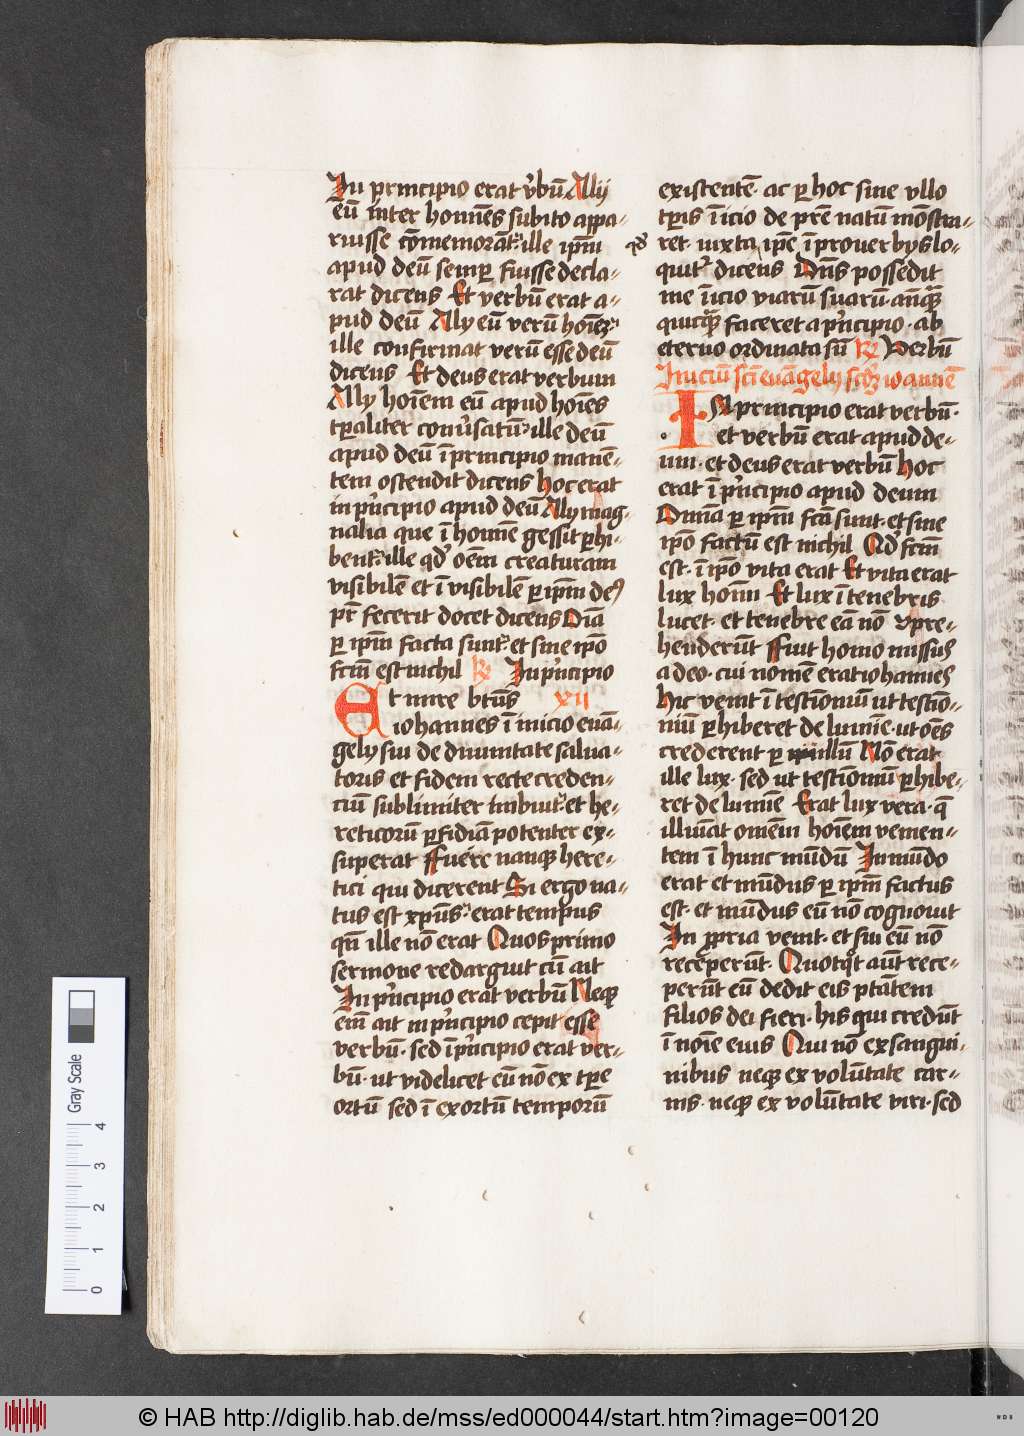 In principio erat v̉bū Alij
eū inter homīes subito appa-
ruisse cōmemorāt᷑ ille ip̄m qd̕
apud deū semp̱ fuisse decla-
rat dicens Et verbū erat a-
pud deū Alij eū verū hoīez᷑
ille confirmat verū esse deū
dicens Et deus erat verbum
Alij hoīem eū apud hoīes
tp̱aliter conv̉satū᷑ ille deū
apud deū ī principio manē-
tem ostendit dicens hoc erat
in pͥncipio apud deū Alij mag-
nalia que ī homīe gessit p̱hi-
bent᷑ ille qd̕ oēm creaturam
visibilē et ī visibilē p̱ ip̄m deꝰ
pr̄ fecerit docet dicens Oīa
p̱ ip̄m facta sunt᷑ et sine ip̄o
fc̄m est nichil R̷ In pͥncipio
Et mire bt̄us xij
iohannes ī inicio euā-
gelij sui de diuinitate salua-
toris et fidem recte creden-
ciū sublimiter imbuit᷑ et he-
reticorū p̱fidiā potenter ex-
superat Fuere nanqꝫ here-
tici qui dicerent Si ergo na-
tus est xp̄us᷑ erat tempus
qn̄ ille nō erat Quos primo
sermone redarguit cū ait
In pͥncipio erat verbū Neqꝫ
em̄ ait in pͥncipio cepit esse
verbū· sed ī pͥncipio erat ver-
bū· ut videlicet eū nō ex tp̱e
ortū sed ī exortū temporū
existentē· ac p̱ hoc sine vllo
tp̱is ī icio de pr̄e natū mōstra-
ret· iuxta ip̄e ī prouerbijs lo-
quit᷑ dicens Dn̄s possedit
me ī icio viarū suarū· anq̄ꝫ
quicq̄ꝫ faceret a pͥncipio· ab
eterno ordinata sū R̷ Verbū
Iniciū sc̄i euāgelij scd̕ꝫ ioannē
IN principio erat verbū·
et verbū erat apud de-
um· et deus erat verbū hoc
erat ī pͥncipio apud deum
Omīa p̱ ip̄m fc̄a sunt· et sine
ip̄o factū est nichil Qd̕ fc̄m
est· ī ip̄o vita erat Et vita erat
lux homī Et lux ī tenebris
lucet· et tenebre eā nō ꝯpre-
henderūt Fuit homo missus
a deo· cui nomē erat iohannes
hic venit ī testīoniū ut testīo-
niū p̱hiberet de lumīe· ut oēs
crederent p̱ illū Nō erat
ille lux· sed ut testīoniū p̱hibe-
ret de lumīe Erat lux vera· q̄
illuīat omēm hoīem venien-
tem ī hunc mūdū In mūdo
erat et mūdus p̱ ip̄m factus
est· et mūdus eū nō cognouit
In ꝓpria venit· et sui eū nō
receperūt· Quotqͦt aūt rece-
perūt eū dedit eis ptātem
filios dei fieri· his qui credūt
ī noīe eius Qui nō ex sangui-
nibus neqꝫ ex volūtate car-
nis· neqꝫ ex volūtate viri· sed
Gray Scale
0 1 2 3 4
© HAB http://diglib.hab.de/mss/ed000044/start.htm?image=00120